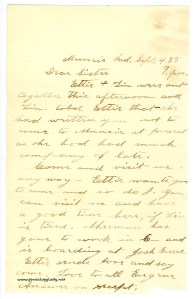 Muncie Ind, Sept, 4, 87
7 pm
Dear Sister
Ettie & Lin were out
together this afternoon and
Lin. told Ettie that she
had written you not to
come to Muncie at present
as she had had much
company of late.
Come and visit me
any way - Ettie wants you
to come and so do I. you
can visit me and have
a good time here, if Lin
is tired. Sherman has
gone to work in and
is boarding at
Ettie sends love and say
come. Love to all Eugene
Answer on receipt.